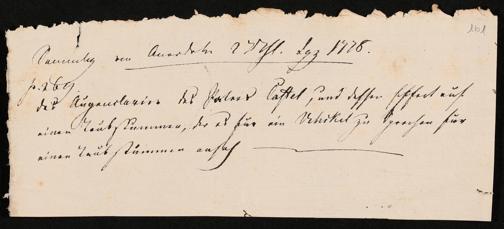 161
Sammlung von Anecdoten 2 Thl. Lpz 1778.
p. 269.
das Augenclavier des Paters Castel, und dessen Effect auf
einen Taubstummen, der es für ein Vehikel zu sprechen für
einen Taubstummen ansah